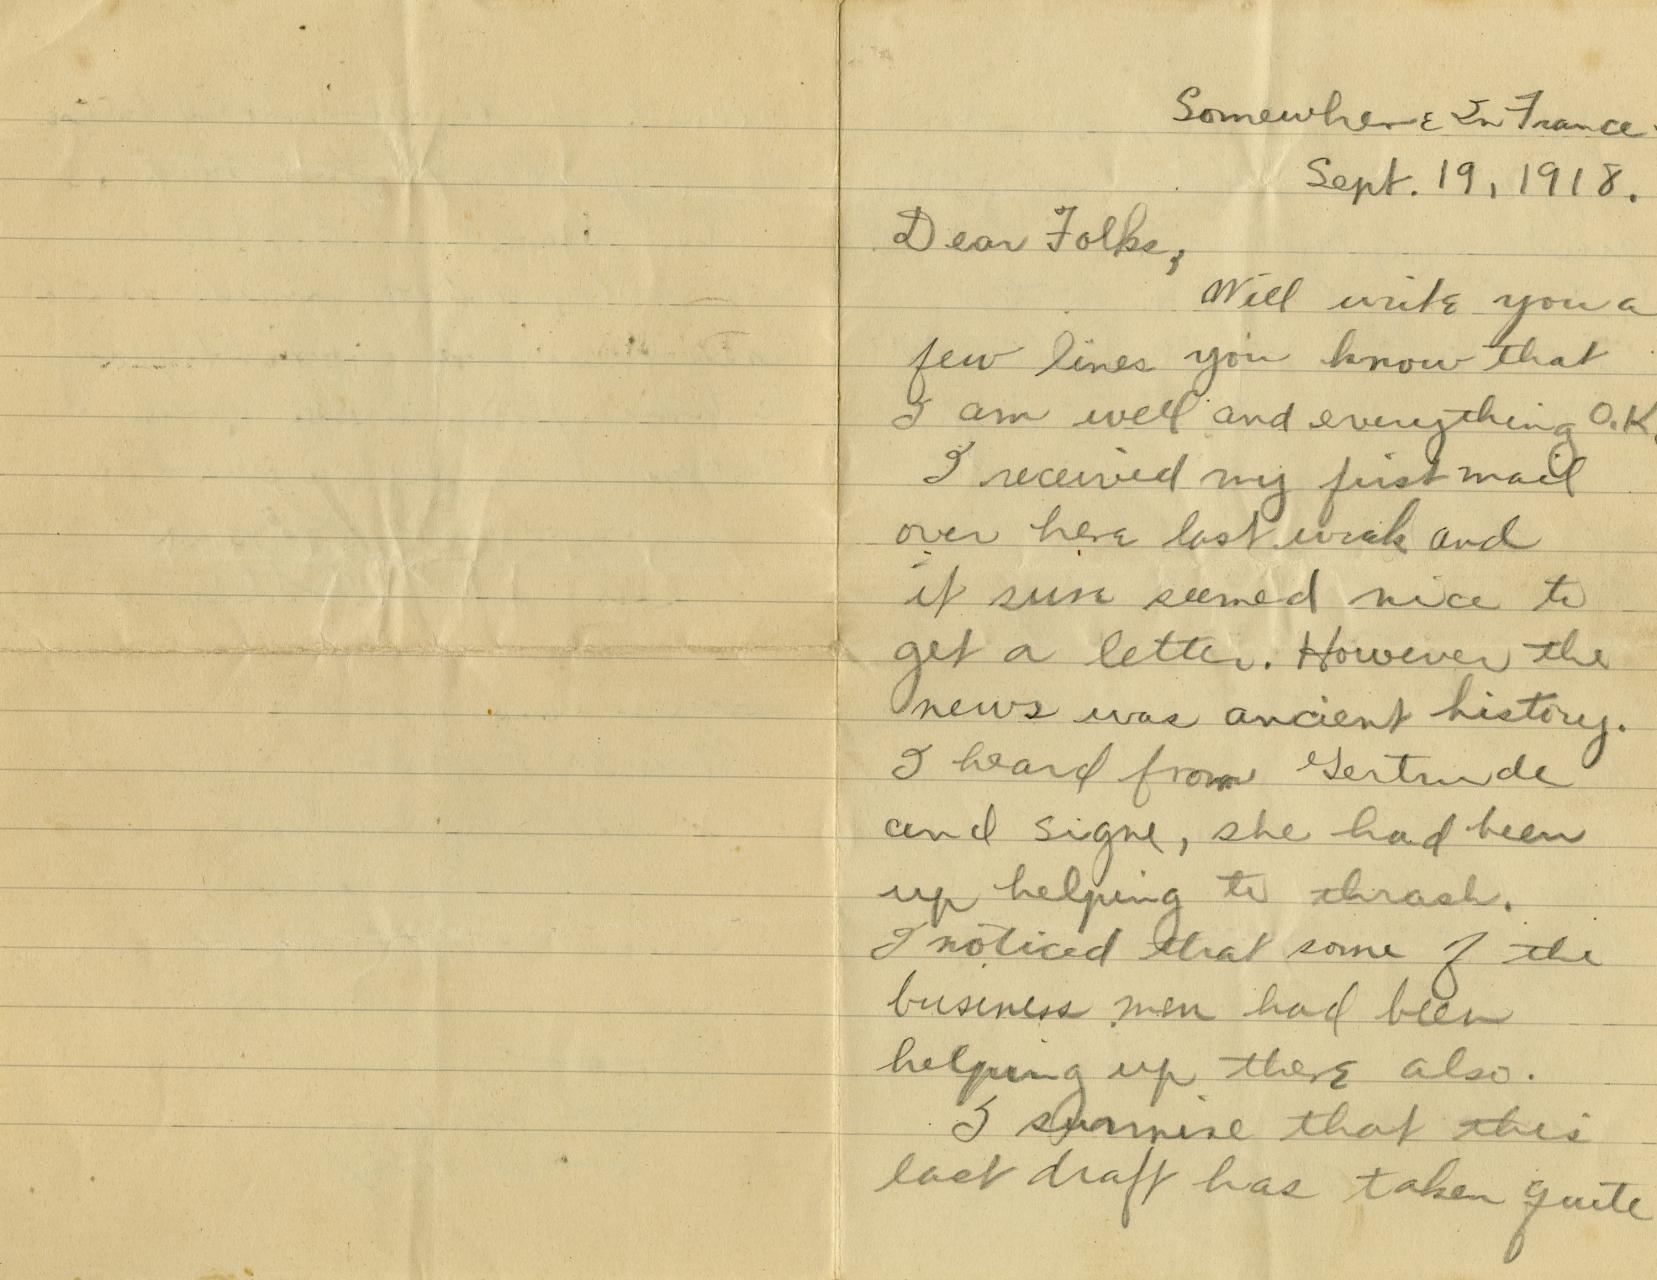 Somewhere In France.
Sept. 19, 1918.
Dear Folks,
Will write you a
few lines you know that
I am well and everything O.K.
I received my first mail
over here last week and
it sure seemed nice to
get a letter. However the
news was ancient history.
I heard from Gertrude
and Signe, she had been
up helping to thrash.
I noticed that some of the
business men had been
helping up there also.
I surmise that this
last draft has taken quite